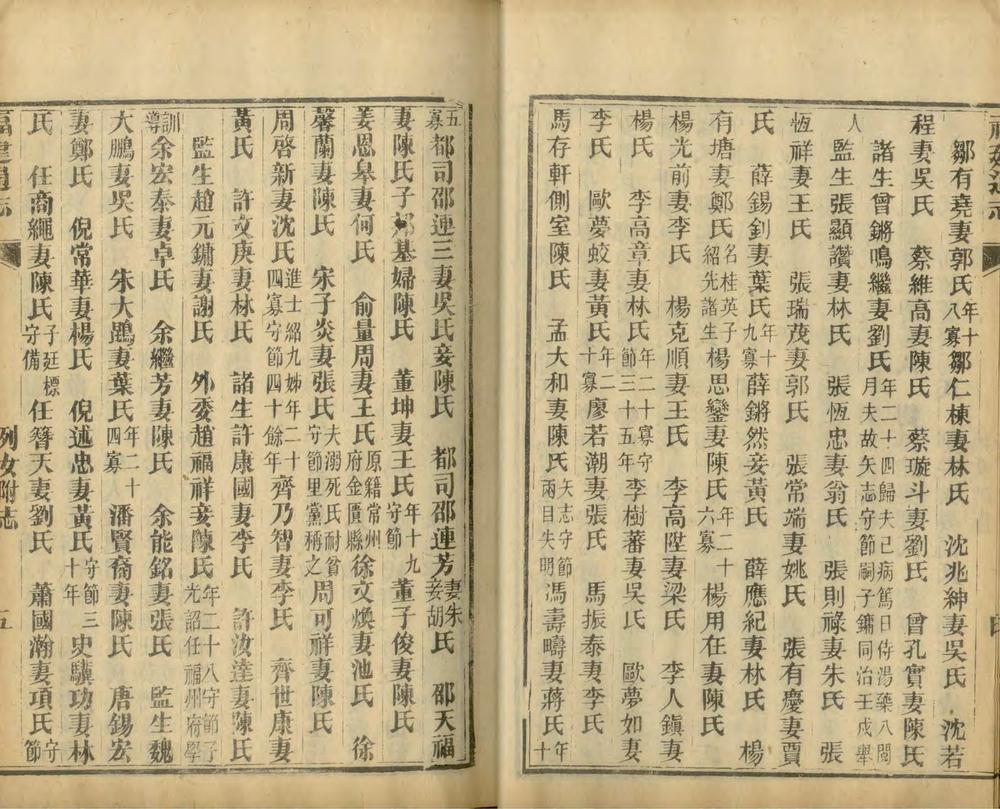 福建通志
鄒有堯妻郭氏年十八寡鄒仁棟妻林氏 沈兆紳妻吳氏 沈若
程妻吳氏 蔡維高妻陳氏 蔡璇斗妻劉氏 曾孔實妻陳氏
諸生曾鏘鳴繼妻劉氏年二十四歸夫已病篤日侍湯藥八閱月夫故矢志守節嗣子鏞同治壬戌舉人
監生張顯讚妻林氏 張恆忠妻翁氏 張則祿妻朱氏 張
恆祥妻王氏 張瑞茂妻郭氏 張常端妻姚氏 張有慶妻賈
氏 薛錫釗妻葉氏年十九寡薛鏘然妾黃氏 薛應紀妻林氏 楊
有塘妻鄭氏名桂英子紹先諸生楊思鑾妻陳氏年二十六寡楊用在妻陳氏
楊光前妻李氏 楊克順妻王氏 李高陞妻梁氏 李人鎮妻
楊氏 李高章妻林氏年二十寡守節三十五年李樹蕃妻吳氏 歐夢如妻
李氏 歐夢蛟妻黃氏年二十寡廖若潮妻張氏 馬振泰妻李氏
馬存軒側室陳氏 孟大和妻陳氏矢志守節兩目失明馮壽疇妻蔣氏年十
五寡都司邵連三妻吳氏妾陳氏 都司邵連芳妻朱妾胡氏 邵天福
妻陳氏子邦基婦陳氏 董坤妻王氏年十九守節董子俊妻陳氏
姜恩皋妻何氏 俞量周妻王氏原籍常州府金匱縣徐文煥妻池氏 徐
馨蘭妻陳氏 宋子炎妻張氏夫溺死氏耐貧守節里黨稱之周可祥妻陳氏
周啓新妻沈氏進士紹九姊年二十四寡守節四十餘年齊乃智妻李氏 齊世康妻
黃氏 許文庚妻林氏 諸生許康國妻李氏 許汝達妻陳氏
監生趙元鏞妻謝氏 外委趙福祥妾陳氏年二十八守節子光詔任福州府學
訓導余宏泰妻卓氏 余繼芳妻陳氏 余能銘妻張氏 監生魏
大鵬妻吳氏 朱大鵾妻葉氏年二十四寡潘賢裔妻陳氏 唐錫宏
妻鄭氏 倪常華妻楊氏 倪述忠妻黃氏守節三十年史驥功妻林
氏 任商繩妻陳氏子廷標守備任簪天妻劉氏 蕭國瀚妻項氏守節
福建通志 列女附志 五